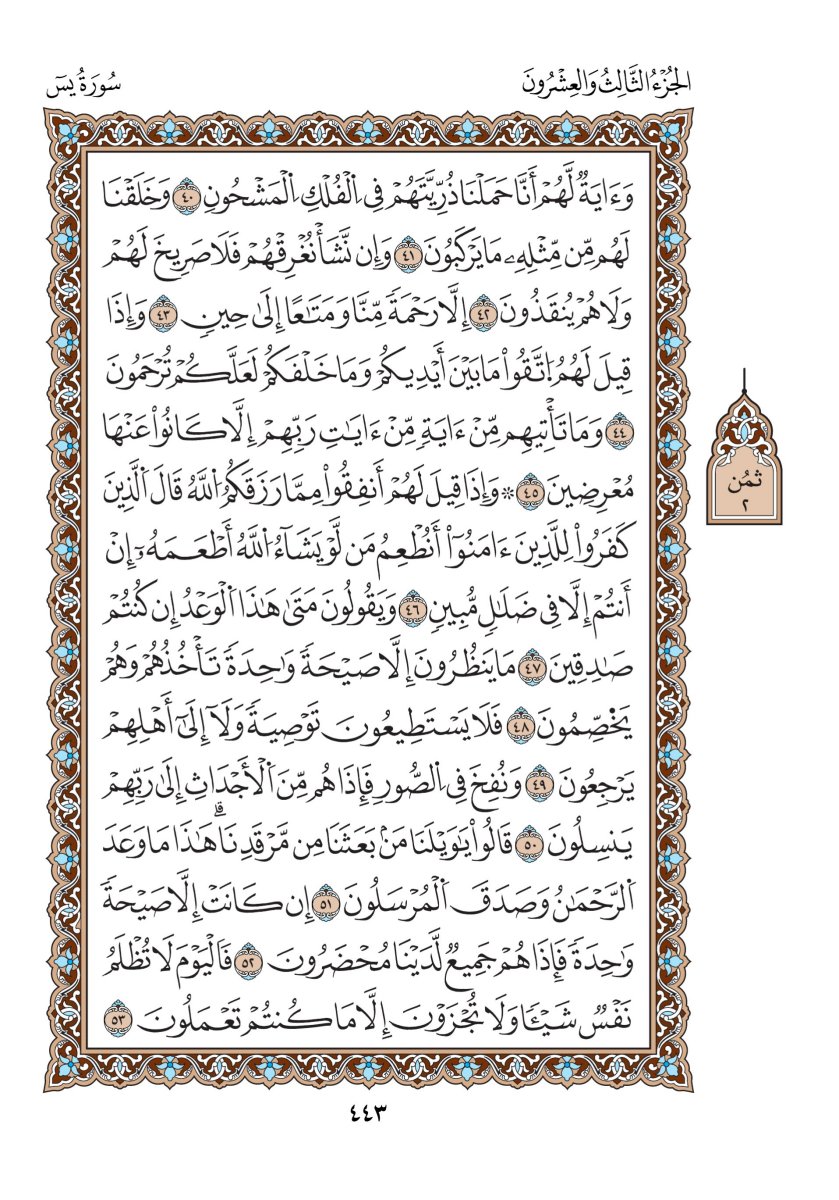 الجُزْءُ الثَّالِثُ وَالعِشْرُونَ
سُورَةُ يسٓ
وَءَايَةٌ لَّهُمْ أَنَّا حَمَلْنَا ذُرِّيَّتَهُمْ فِي اِ۬لْفُلْكِ اِ۬لْمَشْحُونِ ٤٠ وَخَلَقْنَا
لَهُم مِّن مِّثْلِهِۦ مَا يَرْكَبُونَ ٤١ وَإِن نَّشَأْ نُغْرِقْهُمْ فَلَا صَرِيخَ لَهُمْ
وَلَا هُمْ يُنقَذُونَ ٤٢ إِلَّا رَحْمَةً مِّنَّا وَمَتَٰعًا إِلَىٰ حِينٍ ٤٣ وَإِذَا
قِيلَ لَهُمُ اُ۪تَّقُواْ مَا بَيْنَ أَيْدِيكُمْ وَمَا خَلْفَكُمْ لَعَلَّكُمْ تُرْحَمُونَ
٤٤ وَمَا تَأْتِيهِم مِّنْ ءَايَةٍ مِّنْ ءَايَٰتِ رَبِّهِمْ إِلَّا كَانُواْ عَنْهَا
مُعْرِضِينَ ٤٥ ۞ وَإِذَا قِيلَ لَهُمْ أَنفِقُواْ مِمَّا رَزَقَكُمُ اُ۬للَّهُ قَالَ اَ۬لَّذِينَ
كَفَرُواْ لِلَّذِينَ ءَامَنُوٓاْ أَنُطْعِمُ مَن لَّوْ يَشَآءُ اُ۬للَّهُ أَطْعَمَهُۥٓ إِنْ
أَنتُمْ إِلَّا فِي ضَلَٰلٍ مُّبِينٍ ٤٦ وَيَقُولُونَ مَتَىٰ هَٰذَا اَ۬لْوَعْدُ إِن كُنتُمْ
صَٰدِقِينَ ٤٧ مَا يَنظُرُونَ إِلَّا صَيْحَةً وَٰحِدَةً تَأْخُذُهُمْ وَهُمْ
يَخْصِّمُونَ ٤٨ فَلَا يَسْتَطِيعُونَ تَوْصِيَةً وَلَآ إِلَىٰٓ أَهْلِهِمْ
يَرْجِعُونَ ٤٩ وَنُفِخَ فِي اِ۬لصُّورِ فَإِذَا هُم مِّنَ اَ۬لْأَجْدَاثِ إِلَىٰ رَبِّهِمْ
يَنسِلُونَ ٥٠ قَالُواْ يَٰوَيْلَنَا مَنۢ بَعَثَنَا مِن مَّرْقَدِنَاۗ هَٰذَا مَا وَعَدَ
اَ۬لرَّحْمَٰنُ وَصَدَقَ اَ۬لْمُرْسَلُونَ ٥١ إِن كَانَتْ إِلَّا صَيْحَةً
وَٰحِدَةً فَإِذَا هُمْ جَمِيعٌ لَّدَيْنَا مُحْضَرُونَ ٥٢ فَالْيَوْمَ لَا تُظْلَمُ
نَفْسٌ شَيْـًٔا وَلَا تُجْزَوْنَ إِلَّا مَا كُنتُمْ تَعْمَلُونَ ٥٣
ثُمُن
٢
٤٤٣